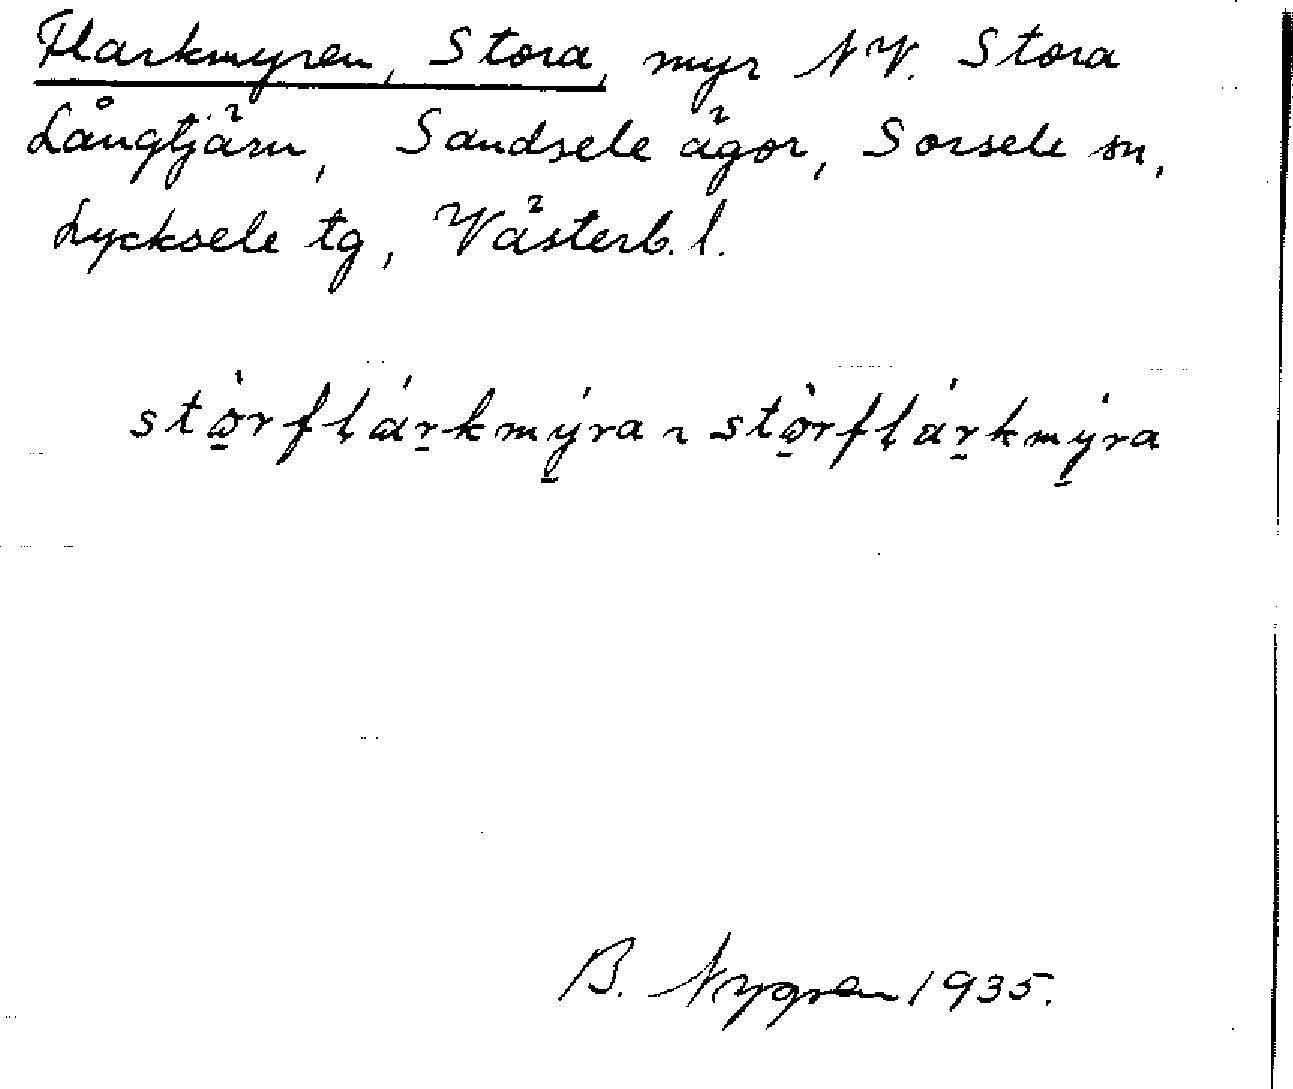 Flarkmyren, Stora, myr NV. Stora
Långtjärn, Sandsele ägor, Sorsele sn,
Lycksele tg, Västerb. l.
stò̱rfḷáṟkmý̱ra ~ stò̱rfḷáṟkmý̱ra
B. Nygren 1935.